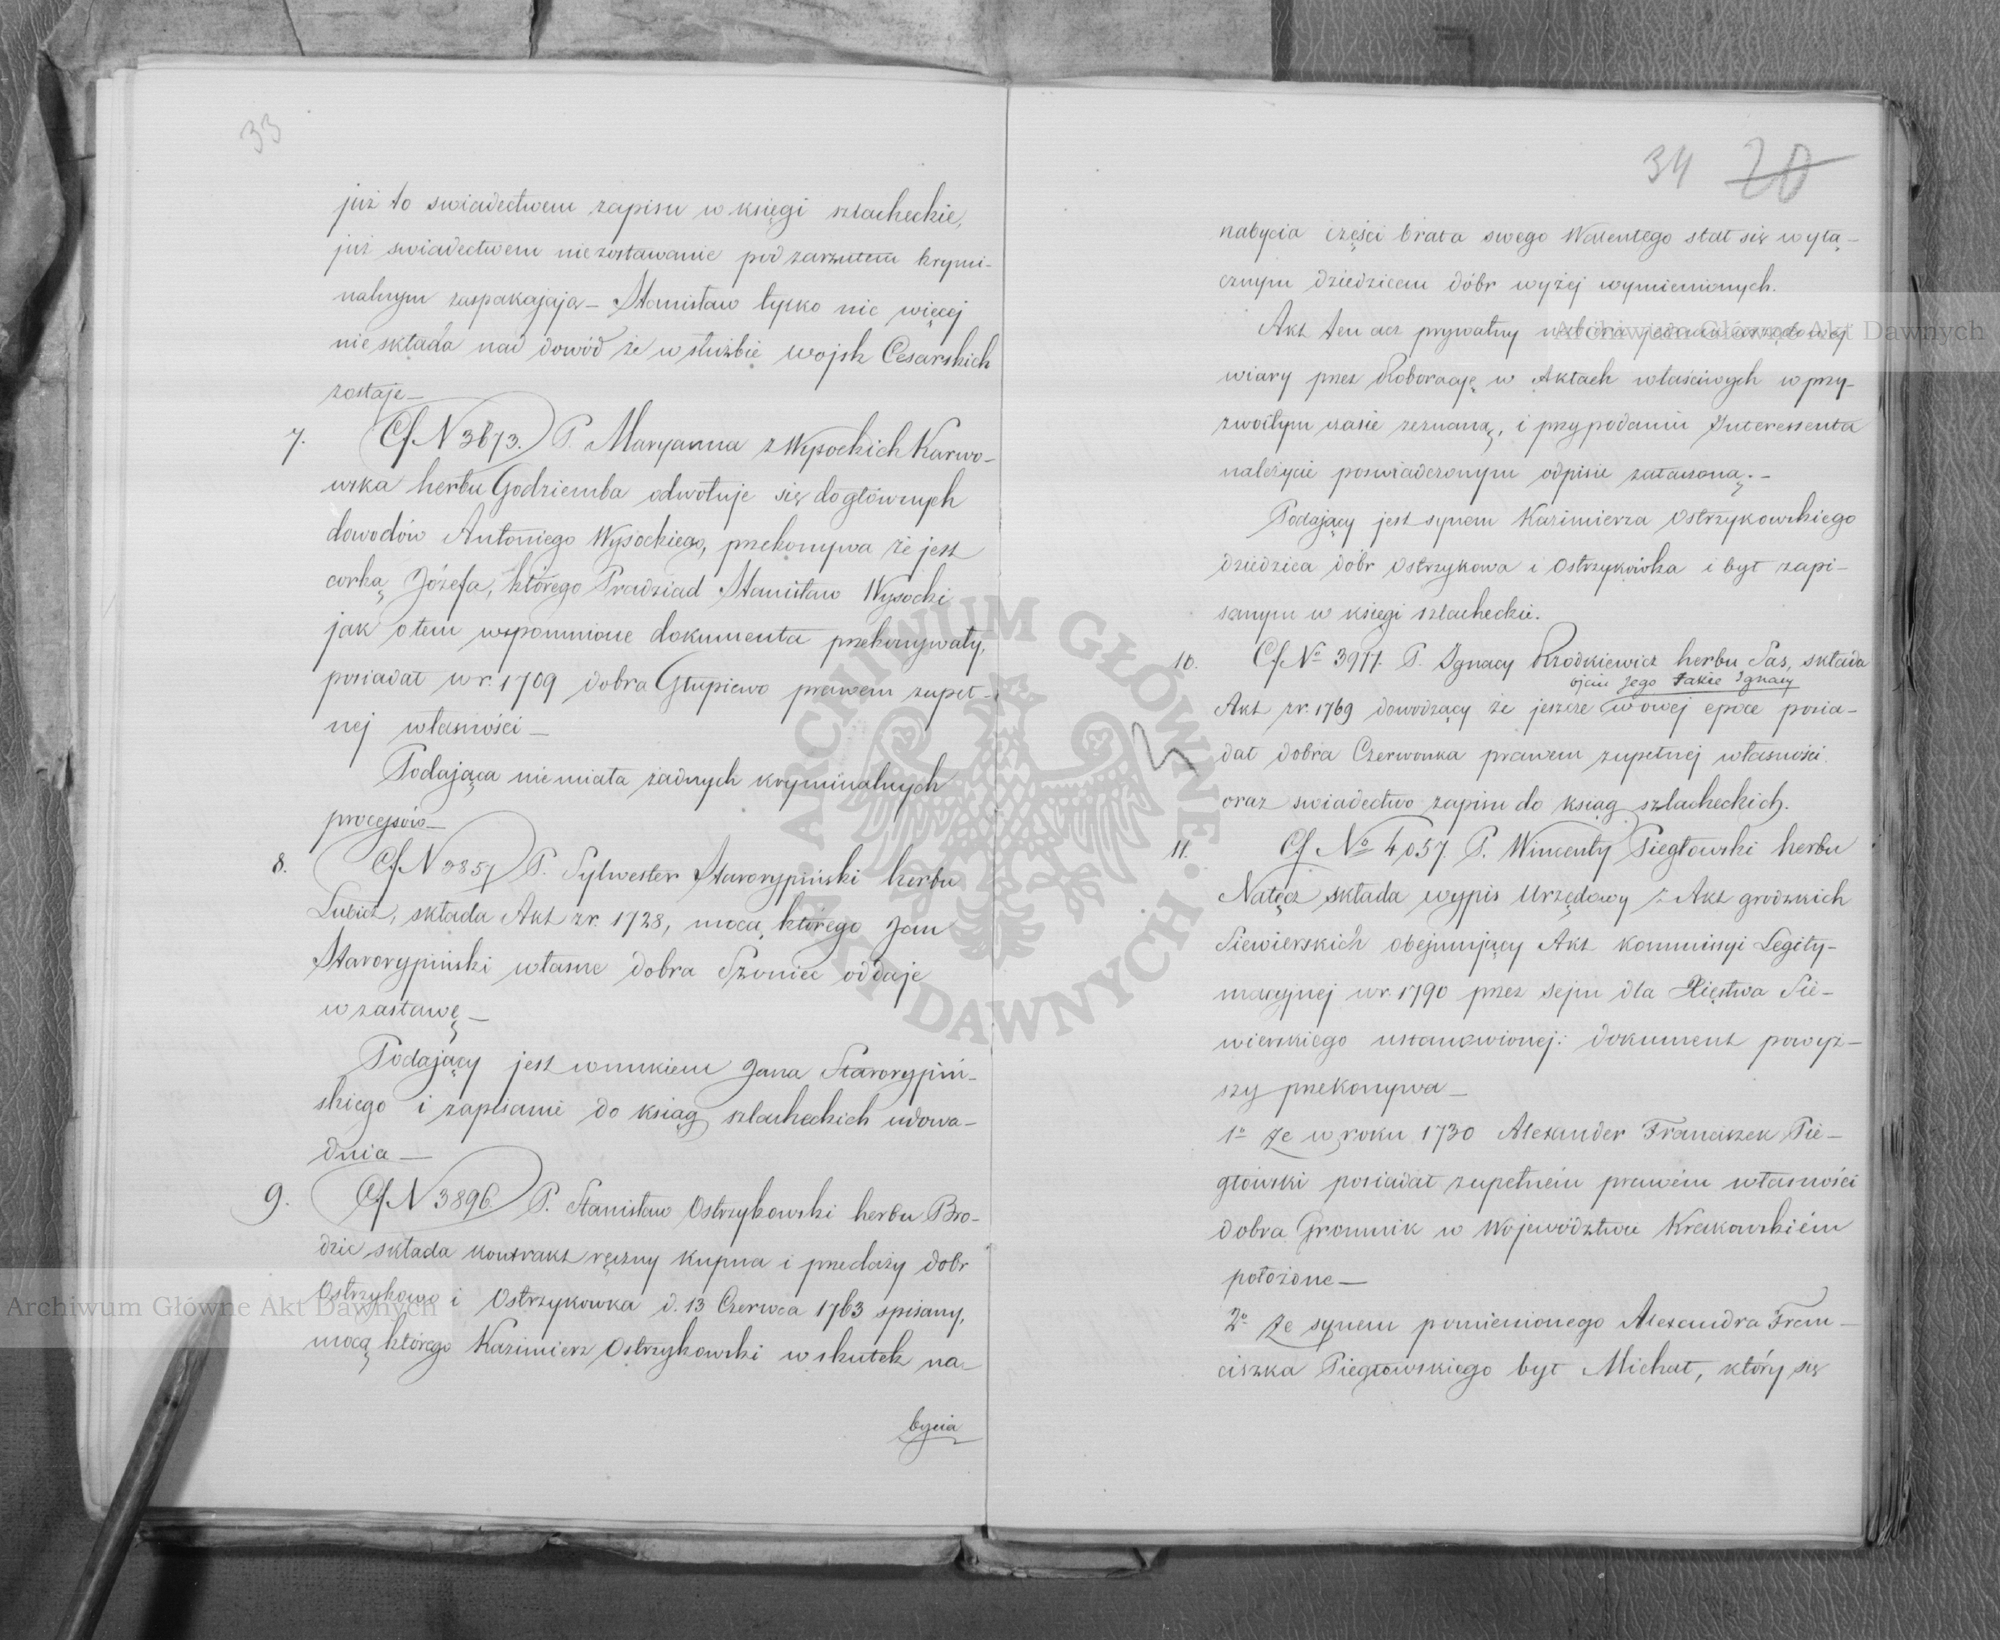 33
już to swiadectwem zapisu w księgi szlacheckie,
już swiadectwem niezostawanie pod zarzutem krymi-
nalnym zaspakajają – Stanisław tylko nic więcej
nie składa nad dowód że w służbie wojsk Cesarskich
zostaje –
7. Cf N 3673. P. Maryanna z Wysockich Karwo-
wska herbu Godziemba odwołuje się do głównych
dowodów Antoniego Wysockiego, przekonywa że jest
corką Józefa, którego Pradziad Stanisław Wysocki
jak o tem wspomnione dokumenta przekonywały,
posiadał w r. 1709 dobra Głupiewo prawem zupeł-
nej własności –
Podająca nie miała żadnych kryminalnych
processów –
8. Cf N 3857 P. Sylwester Starorypiński herbu
Lubicz, składa Akt z r. 1728, mocą którego Jan
Starorypiński własne dobra Szoniec oddaje
w zastawę –
Podający jest wnukiem Jana Starorypiń-
skiego i zapisanie do ksiąg szlacheckich udowa-
dnia –
9. Cf N 3896. P. Stanisław Ostrzykowski herbu Bro-
dzic składa kontrakt ręczny kupna i przedaży dobr
Ostrzykowo i Ostrzykowka d. 13 Czerwca 1763 spisany,
mocą którego Kazimierz Ostrzykowski w skutek na-
bycia
34 20
nabycia części brata swego Walentego stał się wyłą-
cznym dziedzicem dóbr wyżej wymienionych.
Akt ten acz prywatny nabiera urzędowej
wiary przez Roboracyę w Aktach właściwych w przy-
zwoitym czasie zeznaną, i przy podaniu Interessenta
należycie poswiadczonym odpisie załączoną. –
Podający jest synem Kazimierza Ostrzykowskiego
dziedzica dóbr Ostrzykowa i Ostrzykówka i był zapi-
sanym w księgi szlacheckie.
10. Cf No 3911. P. Ignacy Brodkiewicz herbu Sas, składa
ojciec Jego także Ignacy
Akt z r. 1769 dowodzący że jeszcze w owej epoce posia-
dał dobra Czerwonka prawem zupełnej własności
oraz swiadectwo zapisu do ksiąg szlacheckich.
11. Cf No 4057. P. Wincenty Piegłowski herbu
Nałęcz składa wypis Urzędowy z Akt grodzkich
Siewierskich obejmujący Akt Kommissyi Legity-
macyjnej w r. 1790 przez sejm dla Xięstwa Sie-
wierskiego ustanowionej: dokument powyż-
szy przekonywa –
1o Że w roku 1730 Alexander Franciszek Pie-
głowski posiadał zupełném prawém własności
dobra Gromnik w Województwie Krakowskiém
położone –
2o Że synem pomienionego Alexandra Fran-
ciszka Piegłowskiego był Michał, który się
ARCHIWUM GŁÓWNE AKT DAWNYCH
Archiwum Główne Akt Dawnych
Archiwum Główne Akt Dawnych